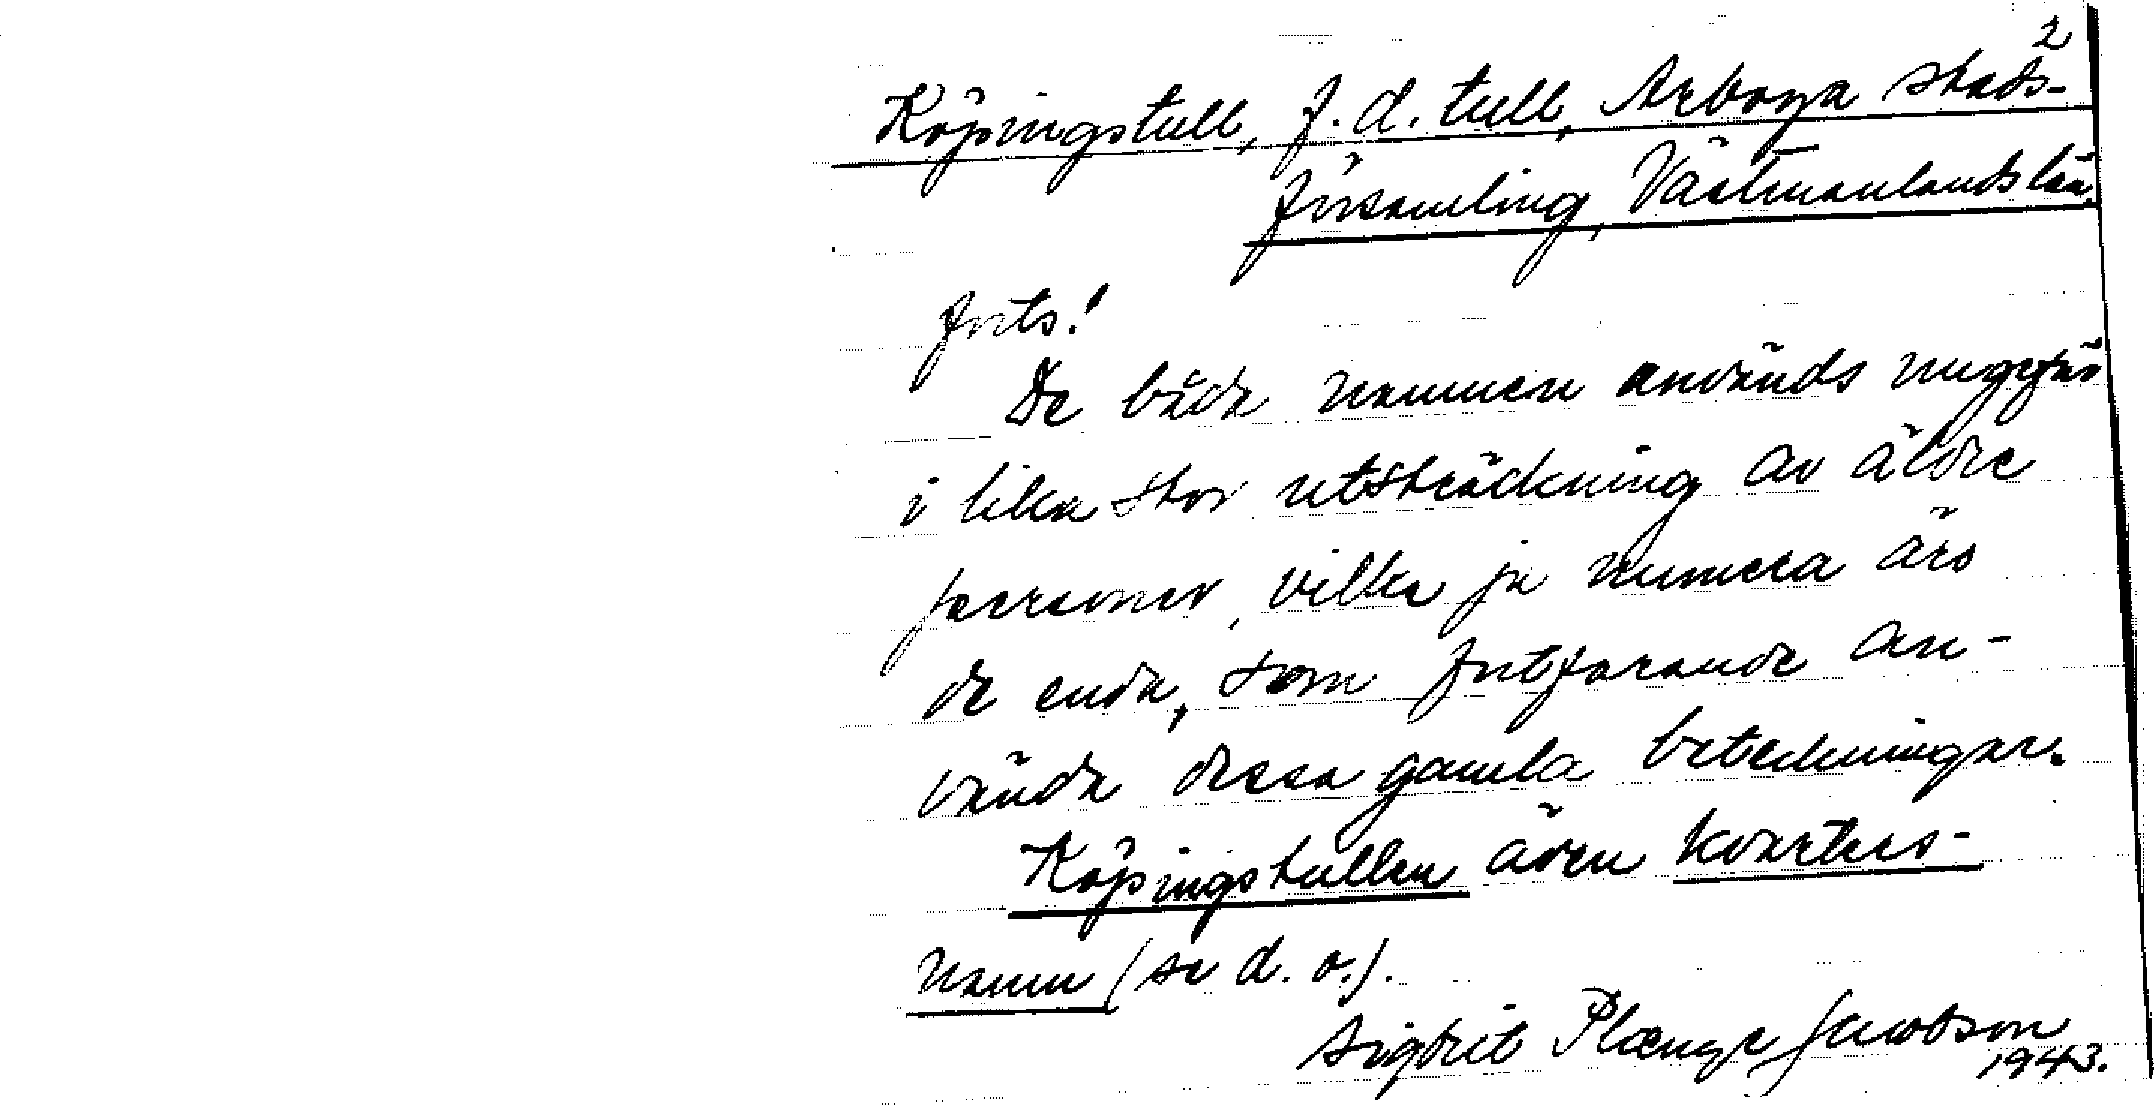 2
Köpingstull, f.d. tull, Arboga stads-
församling, Västmanlands län.
forts!
De båda namnen används ungefär
i lika stor utsträckning av äldre
personer, vilka ju numera äro
de enda, som fortfarande an-
vända dessa gamla beteckningar.
Köpingstullen även kvarters-
namn (se d. o.).
Sigbrit Plænge Jacobson
1943.